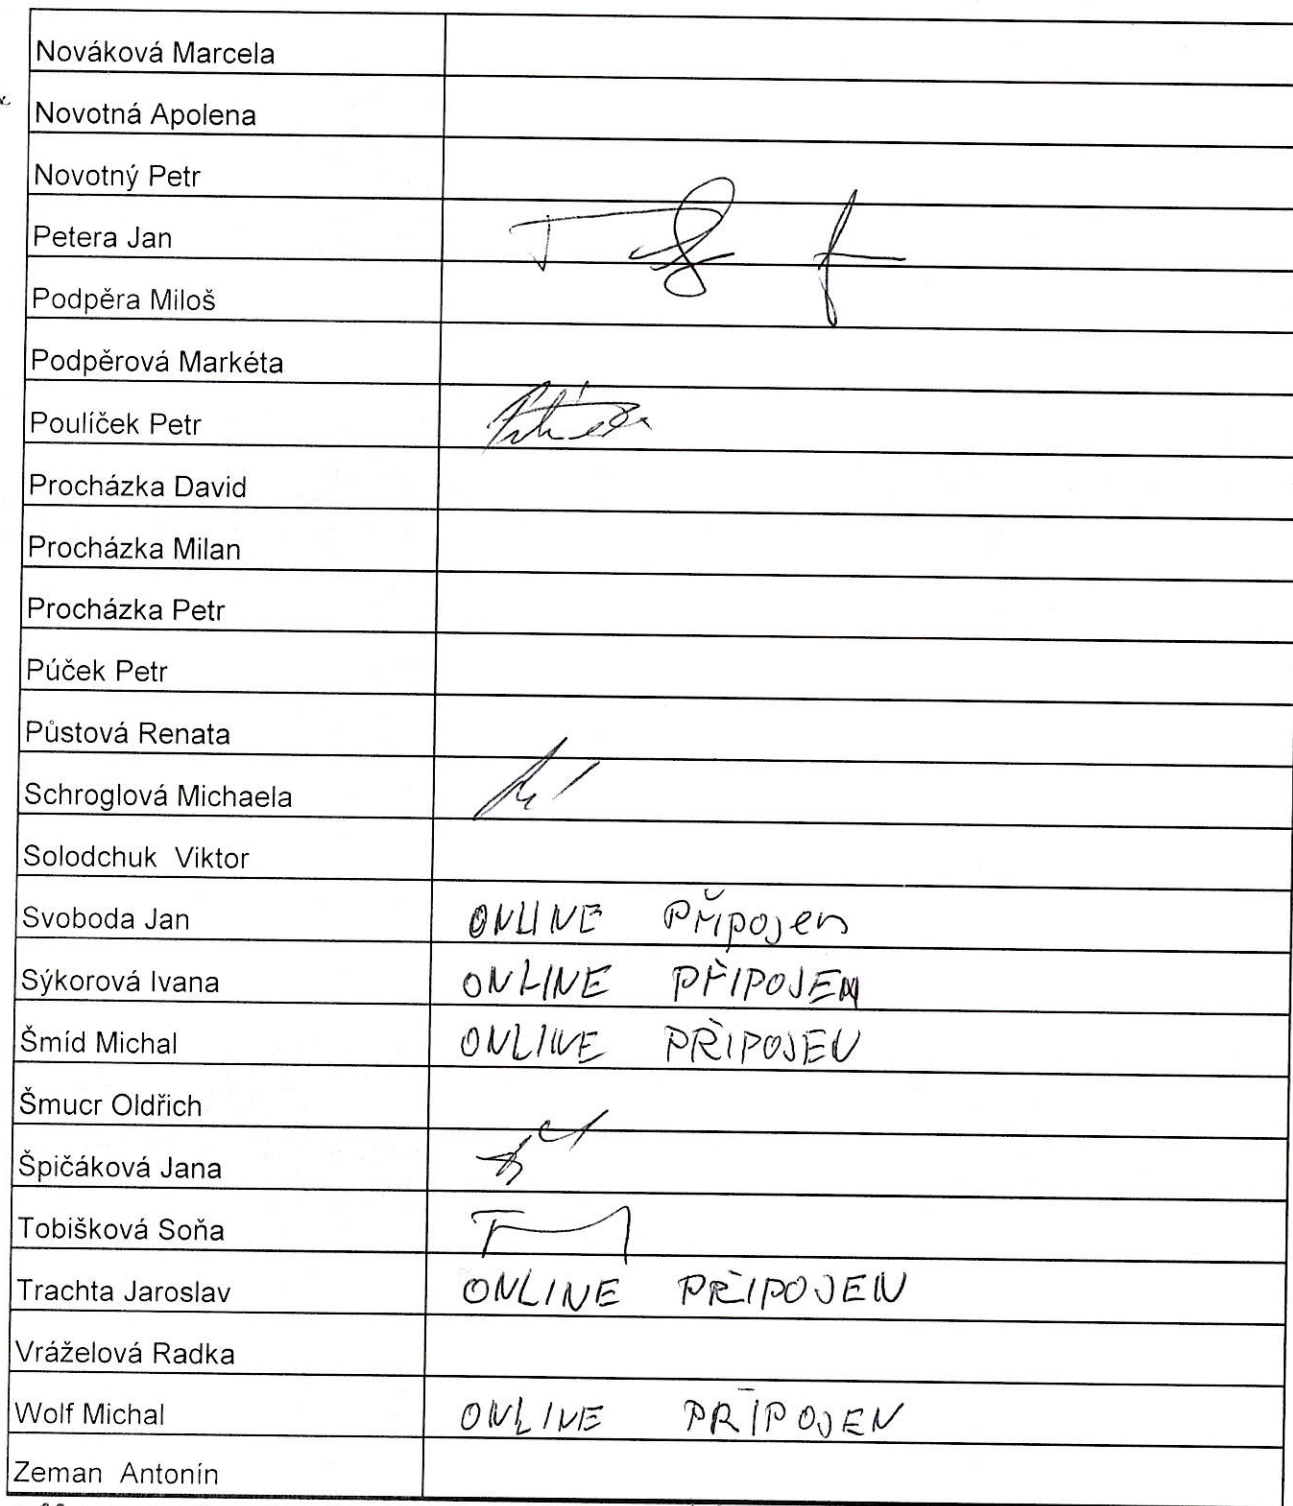 Nováková Marcela
Novotná Apolena
Novotný Petr
Petera Jan
Podpěra Miloš
Podpěrová Markéta
Poulíček Petr
Procházka David
Procházka Milan
Procházka Petr
Púček Petr
Půstová Renata
Schroglová Michaela
Solodchuk Viktor
Svoboda Jan ONLINE Připojen
Sýkorová Ivana ONLINE PŘIPOJEN
Šmíd Michal ONLINE PŘIPOJEN
Šmucr Oldřich
Špičáková Jana
Tobišková Soňa
Trachta Jaroslav ONLINE PŘIPOJEN
Vráželová Radka
Wolf Michal ONLINE PŘIPOJEN
Zeman Antonín